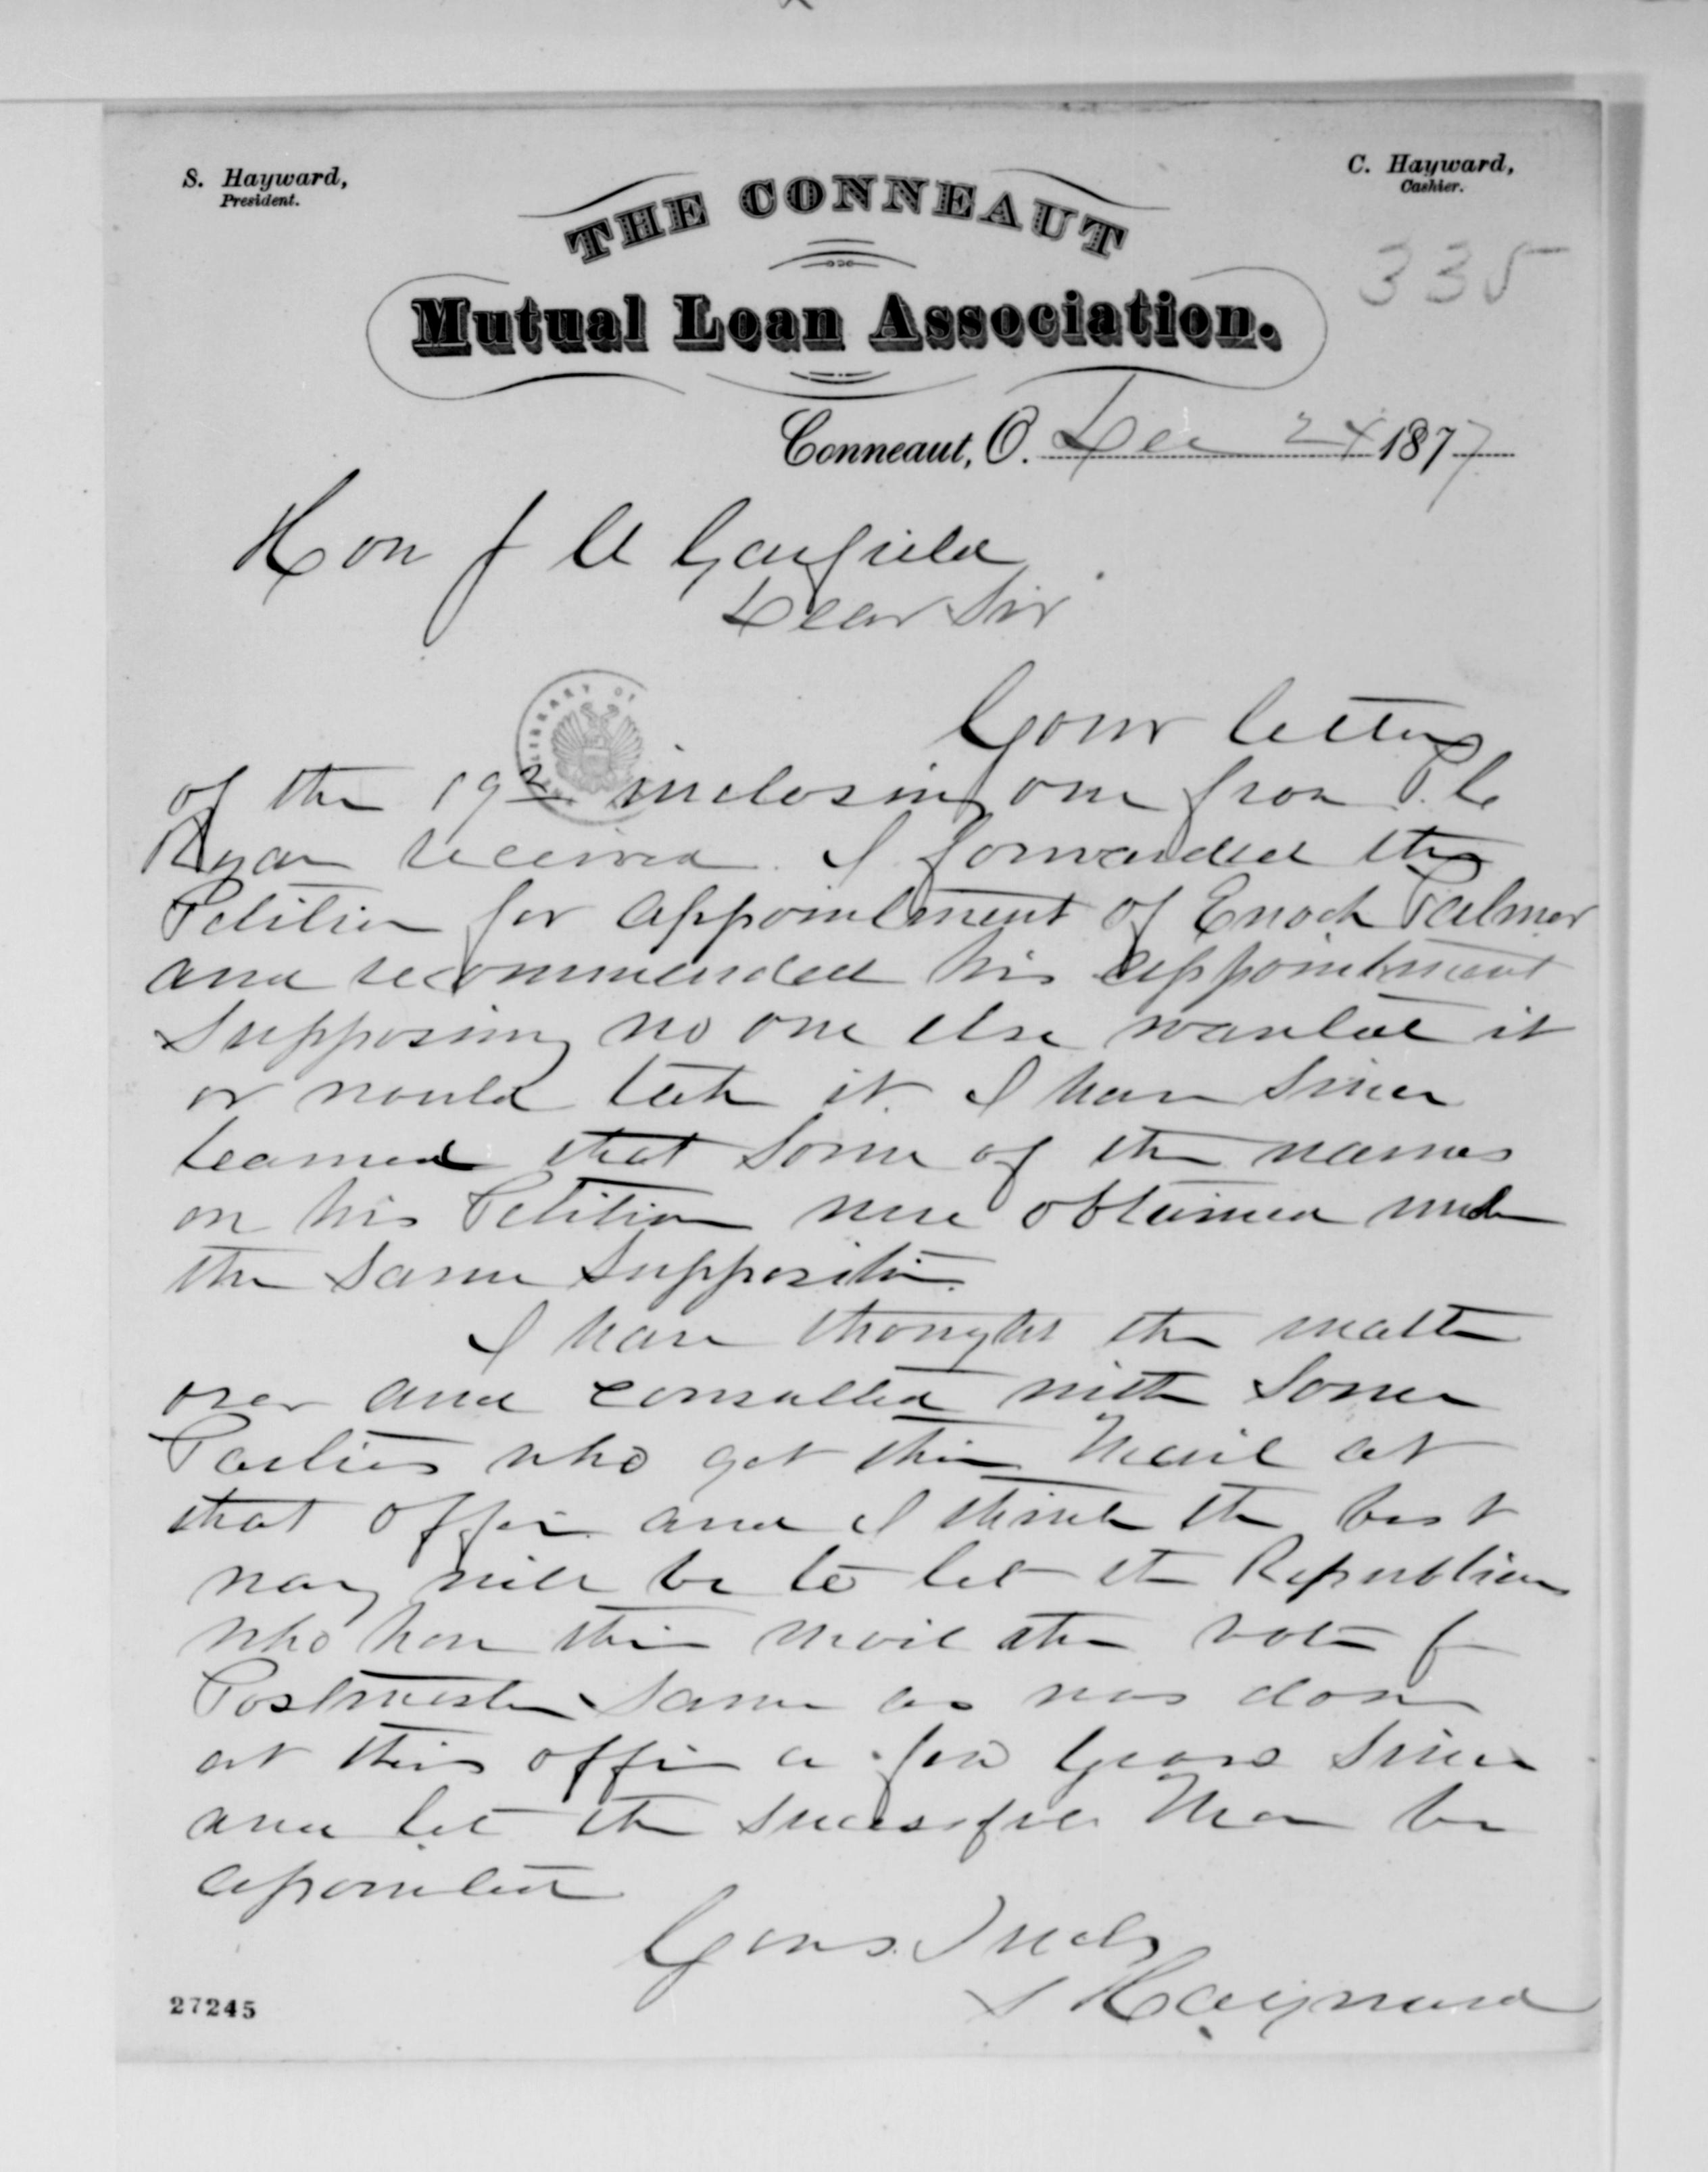 S. Hayward,
President.
C. Hayward,
Cashier.
THE CONNEAUT
Mutual Loan Association.
335
Conneaut, O. Dec 24 1877
Hon J A Garfield
Dear Sir
Your letter
of the 19th inclosing one from P. C
Ryan received. I forwarded the
Petition for appointment of Enoch Palmer
and recommended his appointment
Supposing no one else wanted it
or would take it. I have Since
learned that Some of the names
on his Petition were obtained under
the Same Supposition.
I have thought the matter
over and consulted with Some
Parties who get their Mail at
that office and I think the best
way will be to let the Republicans
who have their mail there vote for
Postmaster Same as was done
at this office a few years Since
and let the successful Man be
apointed
Yours Truly
S Hayward
27245
LIBRARY OF